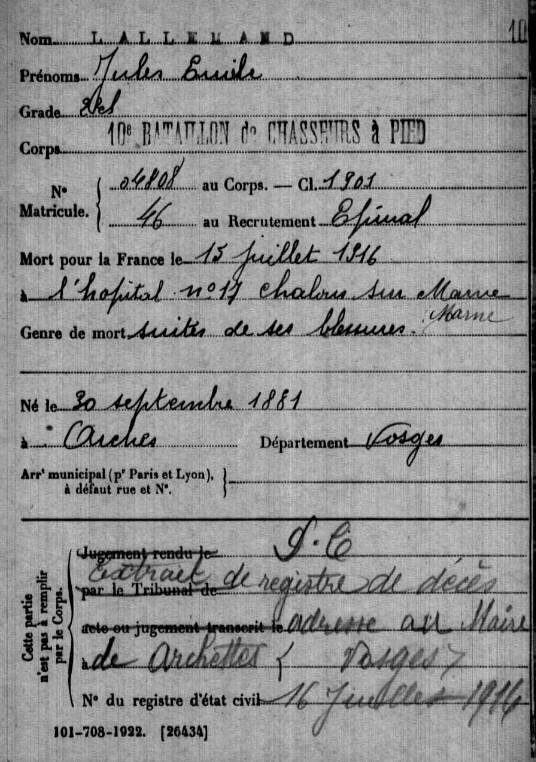 Nom LALLEMAND 10
Prénoms Jules Emile
Grade 2cl
Corps 10e BATAILLON de CHASSEURS à PIED
N° Matricule. { 04808 au Corps. — Cl. 1901
46 au Recrutement Epinal
Mort pour la France le 15 juillet 1916
à l'hopital n°17 chalons sur Marne
Marne
Genre de mort suites de ses blessures.
Né le 30 septembre 1881
à Arches Département Vosges
Arrt municipal (pr Paris et Lyon), à défaut rue et N°. }
Cette partie n'est pas à remplir par le Corps.
Jugement rendu le D.C
Extrait de registre de décès
par le Tribunal de
acte ou jugement transcrit le adresse au Maire
à de Archettes ( Vosges )
N° du registre d'état civil 16 Juillet 1916
101-708-1922. [26434]